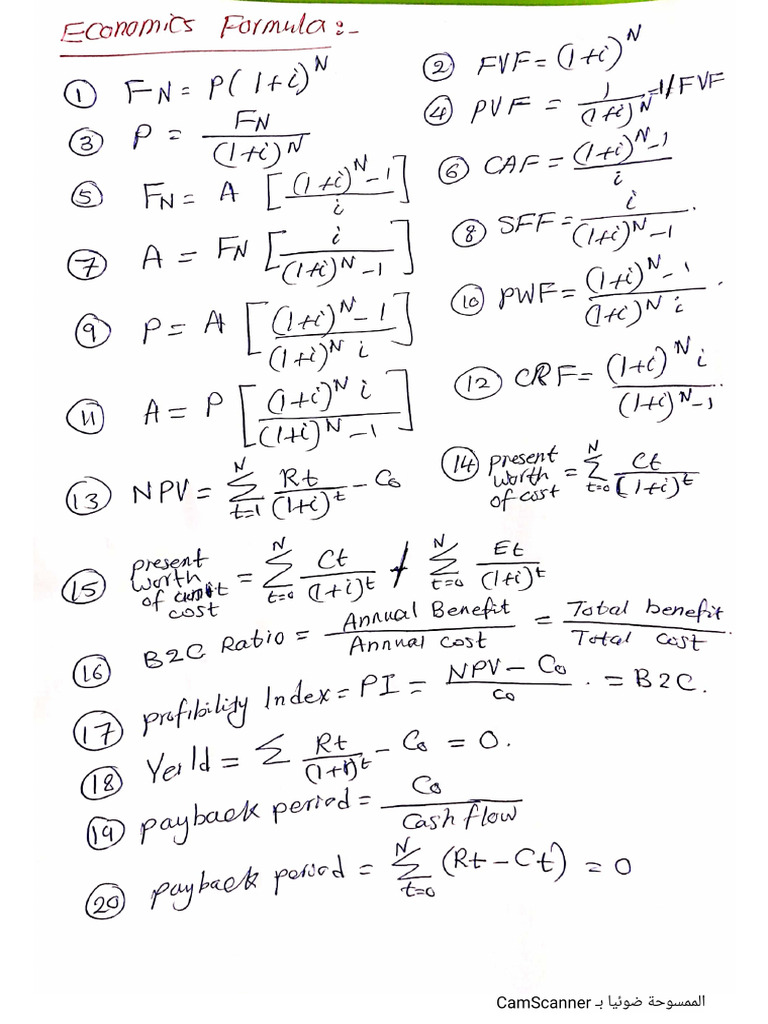 Economics Formula:-
① F_N = P(1+i)^N
② FVF = (1+i)^N
③ P = F_N / (1+i)^N
④ PVF = 1 / (1+i)^N = 1/FVF
⑤ F_N = A [ ((1+i)^N - 1) / i ]
⑥ CAF = ((1+i)^N - 1) / i
⑦ A = F_N [ i / ((1+i)^N - 1) ]
⑧ SFF = i / ((1+i)^N - 1) .
⑨ P = A [ ((1+i)^N - 1) / ((1+i)^N i) ]
⑩ PWF = ((1+i)^N - 1) / ((1+i)^N i) .
⑪ A = P [ ((1+i)^N i) / ((1+i)^N - 1) ]
⑫ CRF = ((1+i)^N i) / ((1+i)^N - 1)
⑬ NPV = Σ_{t=1}^{N} Rt / (1+i)^t - Co
⑭ present worth of cost = Σ_{t=0}^{N} Ct / (1+i)^t
⑮ present worth of cost = Σ_{t=0}^{N} Ct / (1+i)^t / Σ_{t=0}^{N} Et / (1+i)^t
⑯ B2C Ratio = Annual Benefit / Annual cost = Total benefit / Total cost .
⑰ profibility Index = PI = (NPV - Co) / co . = B2C .
⑱ Yerld = Σ Rt / (1+r)^t - Co = 0 .
⑲ payback period = Co / Cash flow
⑳ payback period = Σ_{t=0}^{N} (Rt - Ct) = 0
الممسوحة ضوئيا بـ CamScanner